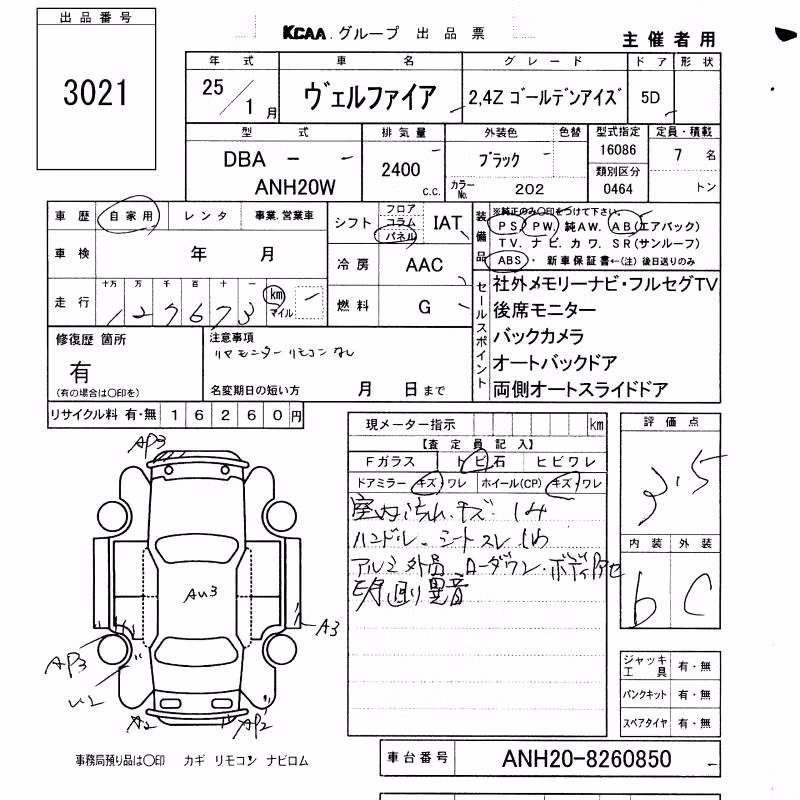 出品番号
3021
KCAA グループ 出品票
主催者用
年式 車名 グレード ドア 形状
25/1月 ヴェルファイア 2,4Z ゴールデンアイズ 5D
型式 排気量 外装色 色替 型式指定 定員・積載
DBA - - 2400 c.c. ブラック 16086 7名
ANH20W カラーNo. 202 類別区分 0464 トン
車歴 自家用 レンタ 事業.営業車
シフト フロア コラム パネル IAT
装備品 ※純正のみ〇印をつけて下さい。
PS PW. 純AW. AB(エアバック)
TV. ナビ. カワ. SR(サンルーフ)
ABS・ 新車保証書←(注)後日送りのみ
車検 年 月
冷房 AAC
走行 十万 万 千 百 十 一 km マイル
127673
燃料 G
セールスポイント
社外メモリーナビ・フルセグTV
後席モニター
バックカメラ
オートバックドア
両側オートスライドドア
修復歴 箇所
有
(有の場合は〇印を)
注意事項
リヤモニターリモコンなし
名変期日の短い方 月 日まで
リサイクル料 有・無 16260円
現メーター指示 km
【査定員記入】
Fガラス トビ石 ヒビワレ
ドアミラー キズ・ワレ ホイール(CP) キズ・ワレ
室内汚れ.キズ シミ
ハンドル シートスレ
アルミ外品 ローダウン.ボディ
異音
評価点
3.5
内装 外装
b C
AP3
AU3
A3
AP3
A2
AP2
ジャッキ工具 有・無
パンクキット 有・無
スペアタイヤ 有・無
事務局預り品は〇印 カギ リモコン ナビロム
車台番号 ANH20-8260850